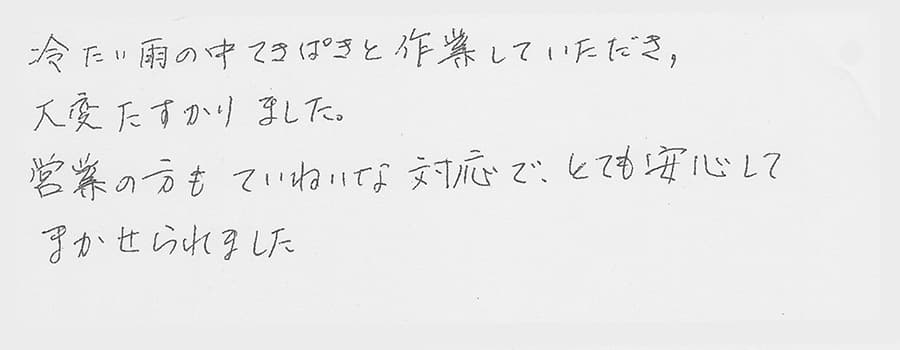 冷たい雨の中てきぱきと作業していただき,
大変たすかりました。
営業の方もていねいな対応で、とても安心して
まかせられました